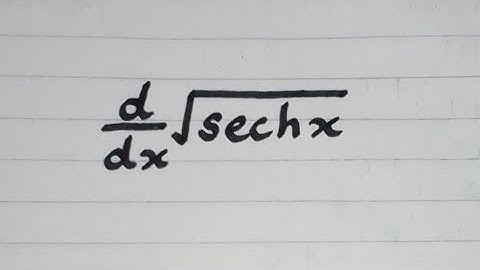 d/dx √sechx